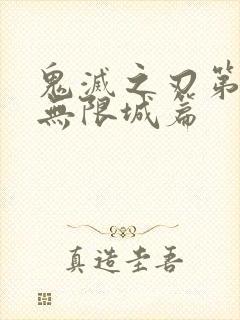 鬼滅之刃第
無限城篇
真造圭吾